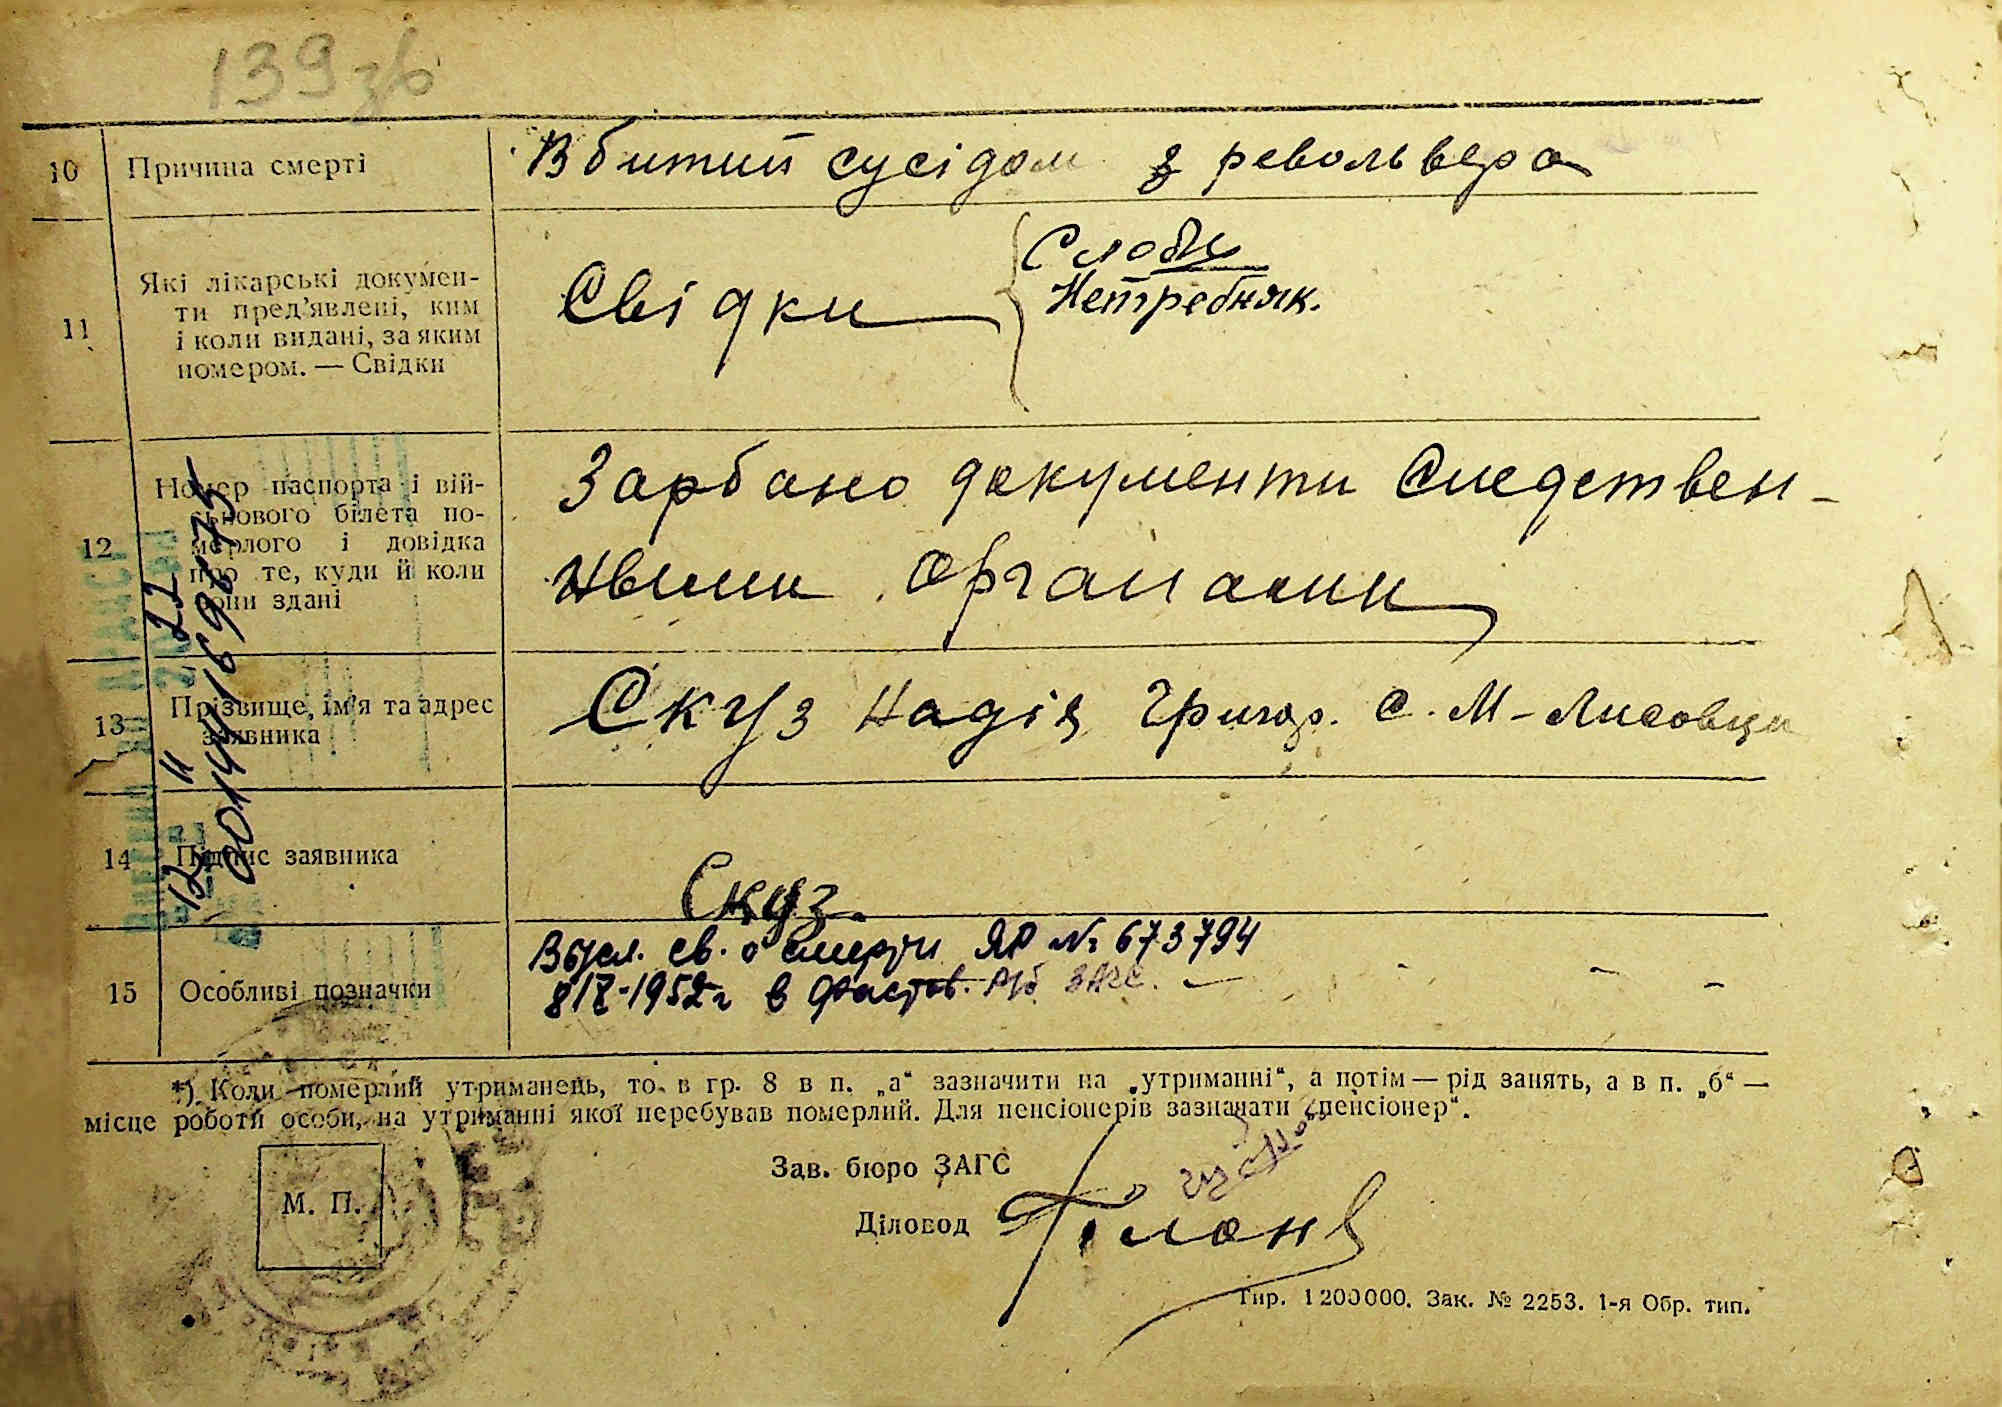 139 зв
10 Причина смерті Вбитий сусідом з револьвера
11 Які лікарські докумен-
ти пред'явлені, ким
і коли видані, за яким
номером. — Свідки
Свідки
Нетребняк.
12 Номер паспорта і вій-
ськового білета по-
мерлого і довідка
про те, куди й коли
вони здані
Зарбано документи Следствен-
ными Органами
13 Прізвище, ім'я та адрес
заявника
Скуз Надія Григор. с. М-Лисовци
14 Підпис заявника
Скуз.
15 Особливі позначки
св. о смерти ЯР № 673794
1952 г в Фастов. Р/б ЗАГС. —
*) Коли померлий утриманець, то в гр. 8 в п. „а“ зазначити на „утриманні“, а потім — рід занять, а в п. „б“ —
місце роботи особи, на утриманні якої перебував померлий. Для пенсіонерів зазначати „пенсіонер“.
Зав. бюро ЗАГС
М. П.
Діловод
Тир. 1200000. Зак. № 2253. 1-я Обр. тип.